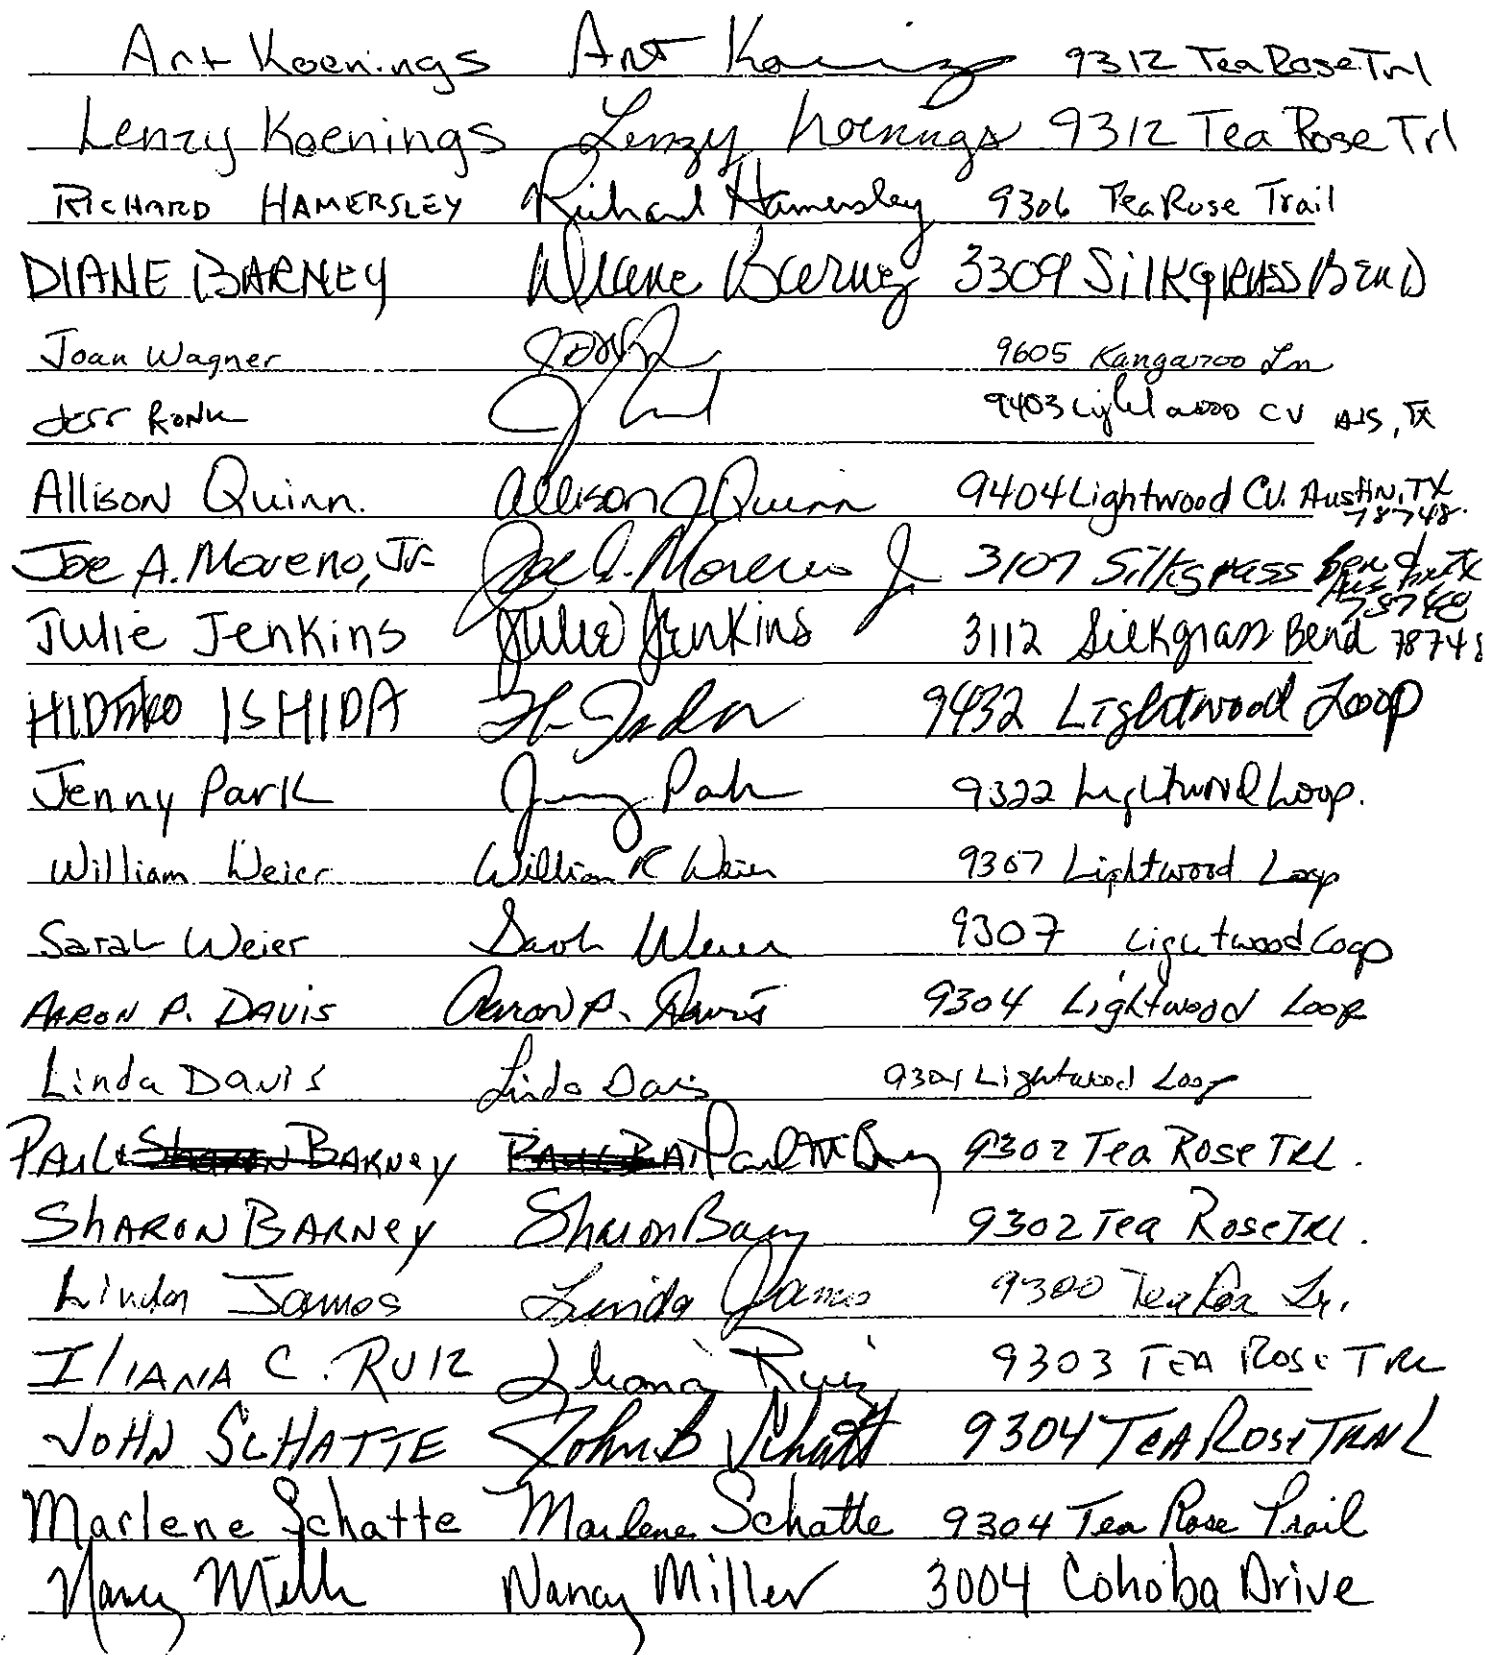 Art Koenings Art Koenings 9312 Tea Rose Trl
Lenzy Koenings Lenzy Koenings 9312 Tea Rose Trl
RICHARD HAMERSLEY Richard Hamersley 9306 Tea Rose Trail
DIANE BARNEY Diane Barney 3309 SilKgRASS BEND
Joan Wagner 9605 Kangaroo Ln
Jeff RONK 9403 Lightwood CV AUS, TX
Allison Quinn. Allison J Quinn 9404 Lightwood CV. Austin, TX 78748.
Joe A. Moreno, Jr. Joe A. Moreno Jr 3107 Silkgrass Bend Austin TX 78748
Julie Jenkins Julie Jenkins 3112 Silkgrass Bend 78748
HIDEKO ISHIDA 9432 Lightwood Loop
Jenny Park Jenny Park 9322 Lightwood Loop.
William Weier William R Weier 9307 Lightwood Loop
Sarah Weier Sarah Weier 9307 Lightwood Loop
AARON P. DAVIS Aaron P. Davis 9304 Lightwood Loop
Linda Davis Linda Davis 9304 Lightwood Loop
PAUL BARNEY Paul M Barney 9302 Tea Rose TRL.
SHARON BARNEY Sharon Barney 9302 Tea Rose TRL.
Linda James Linda James 9300 Tea Rose Tr.
ILIANA C. RUIZ Iliana Ruiz 9303 TEA ROSE TRL
JOHN SCHATTE John B Schatte 9304 TEA ROSE TRAIL
Marlene Schatte Marlene Schatte 9304 Tea Rose Trail
Nancy Miller Nancy Miller 3004 Cohoba Drive